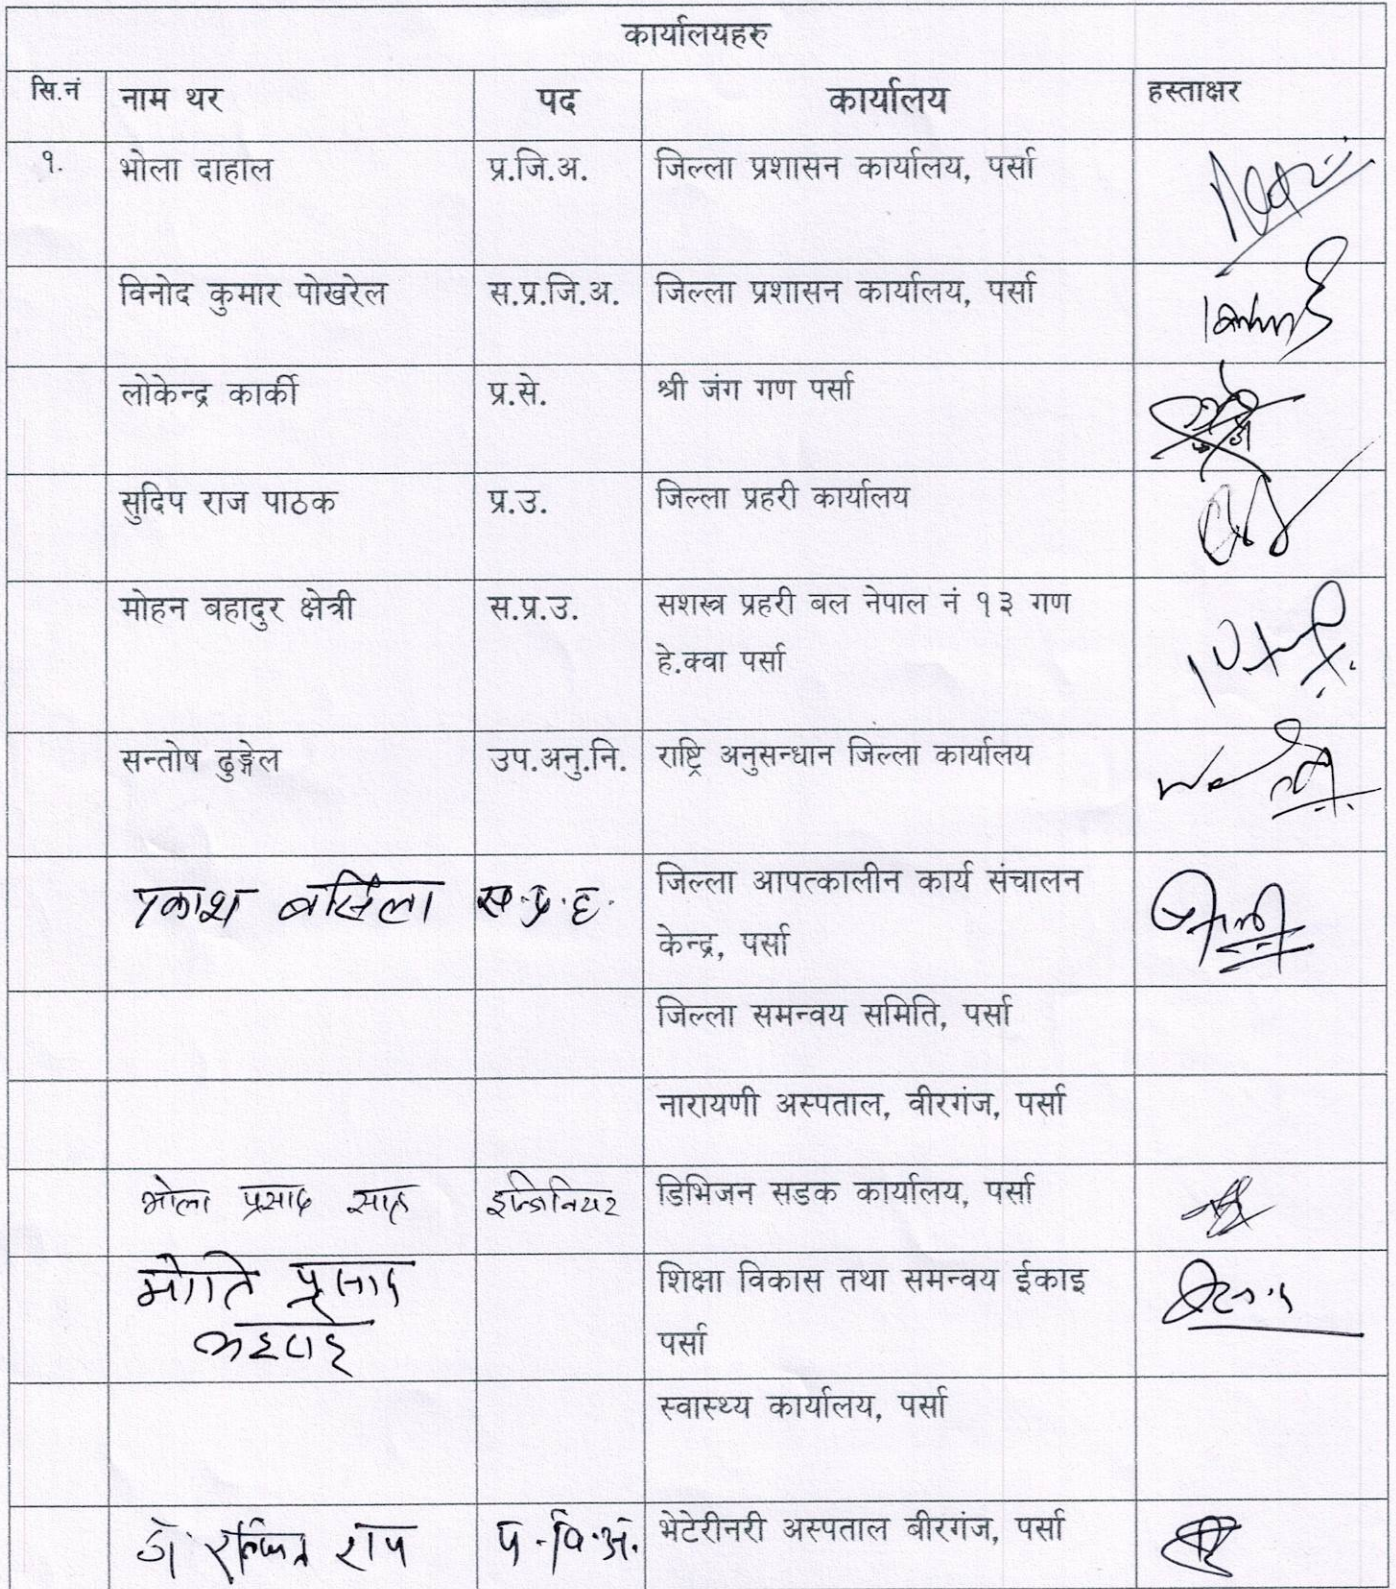 कार्यालयहरु
सि.नं नाम थर पद कार्यालय हस्ताक्षर
१. भोला दाहाल प्र.जि.अ. जिल्ला प्रशासन कार्यालय, पर्सा
विनोद कुमार पोखरेल स.प्र.जि.अ. जिल्ला प्रशासन कार्यालय, पर्सा
लोकेन्द्र कार्की प्र.से. श्री जंग गण पर्सा
सुदिप राज पाठक प्र.उ. जिल्ला प्रहरी कार्यालय
मोहन बहादुर क्षेत्री स.प्र.उ. सशस्त्र प्रहरी बल नेपाल नं १३ गण
हे.क्वा पर्सा
सन्तोष ढुङ्गेल उप.अनु.नि. राष्ट्रि अनुसन्धान जिल्ला कार्यालय
प्रकाश जिल्ला आपत्कालीन कार्य संचालन
केन्द्र, पर्सा
जिल्ला समन्वय समिति, पर्सा
नारायणी अस्पताल, वीरगंज, पर्सा
भोला प्रसाद साह इन्जिनियर डिभिजन सडक कार्यालय, पर्सा
प्रसाद शिक्षा विकास तथा समन्वय ईकाइ
पर्सा
स्वास्थ्य कार्यालय, पर्सा
भेटेरीनरी अस्पताल बीरगंज, पर्सा